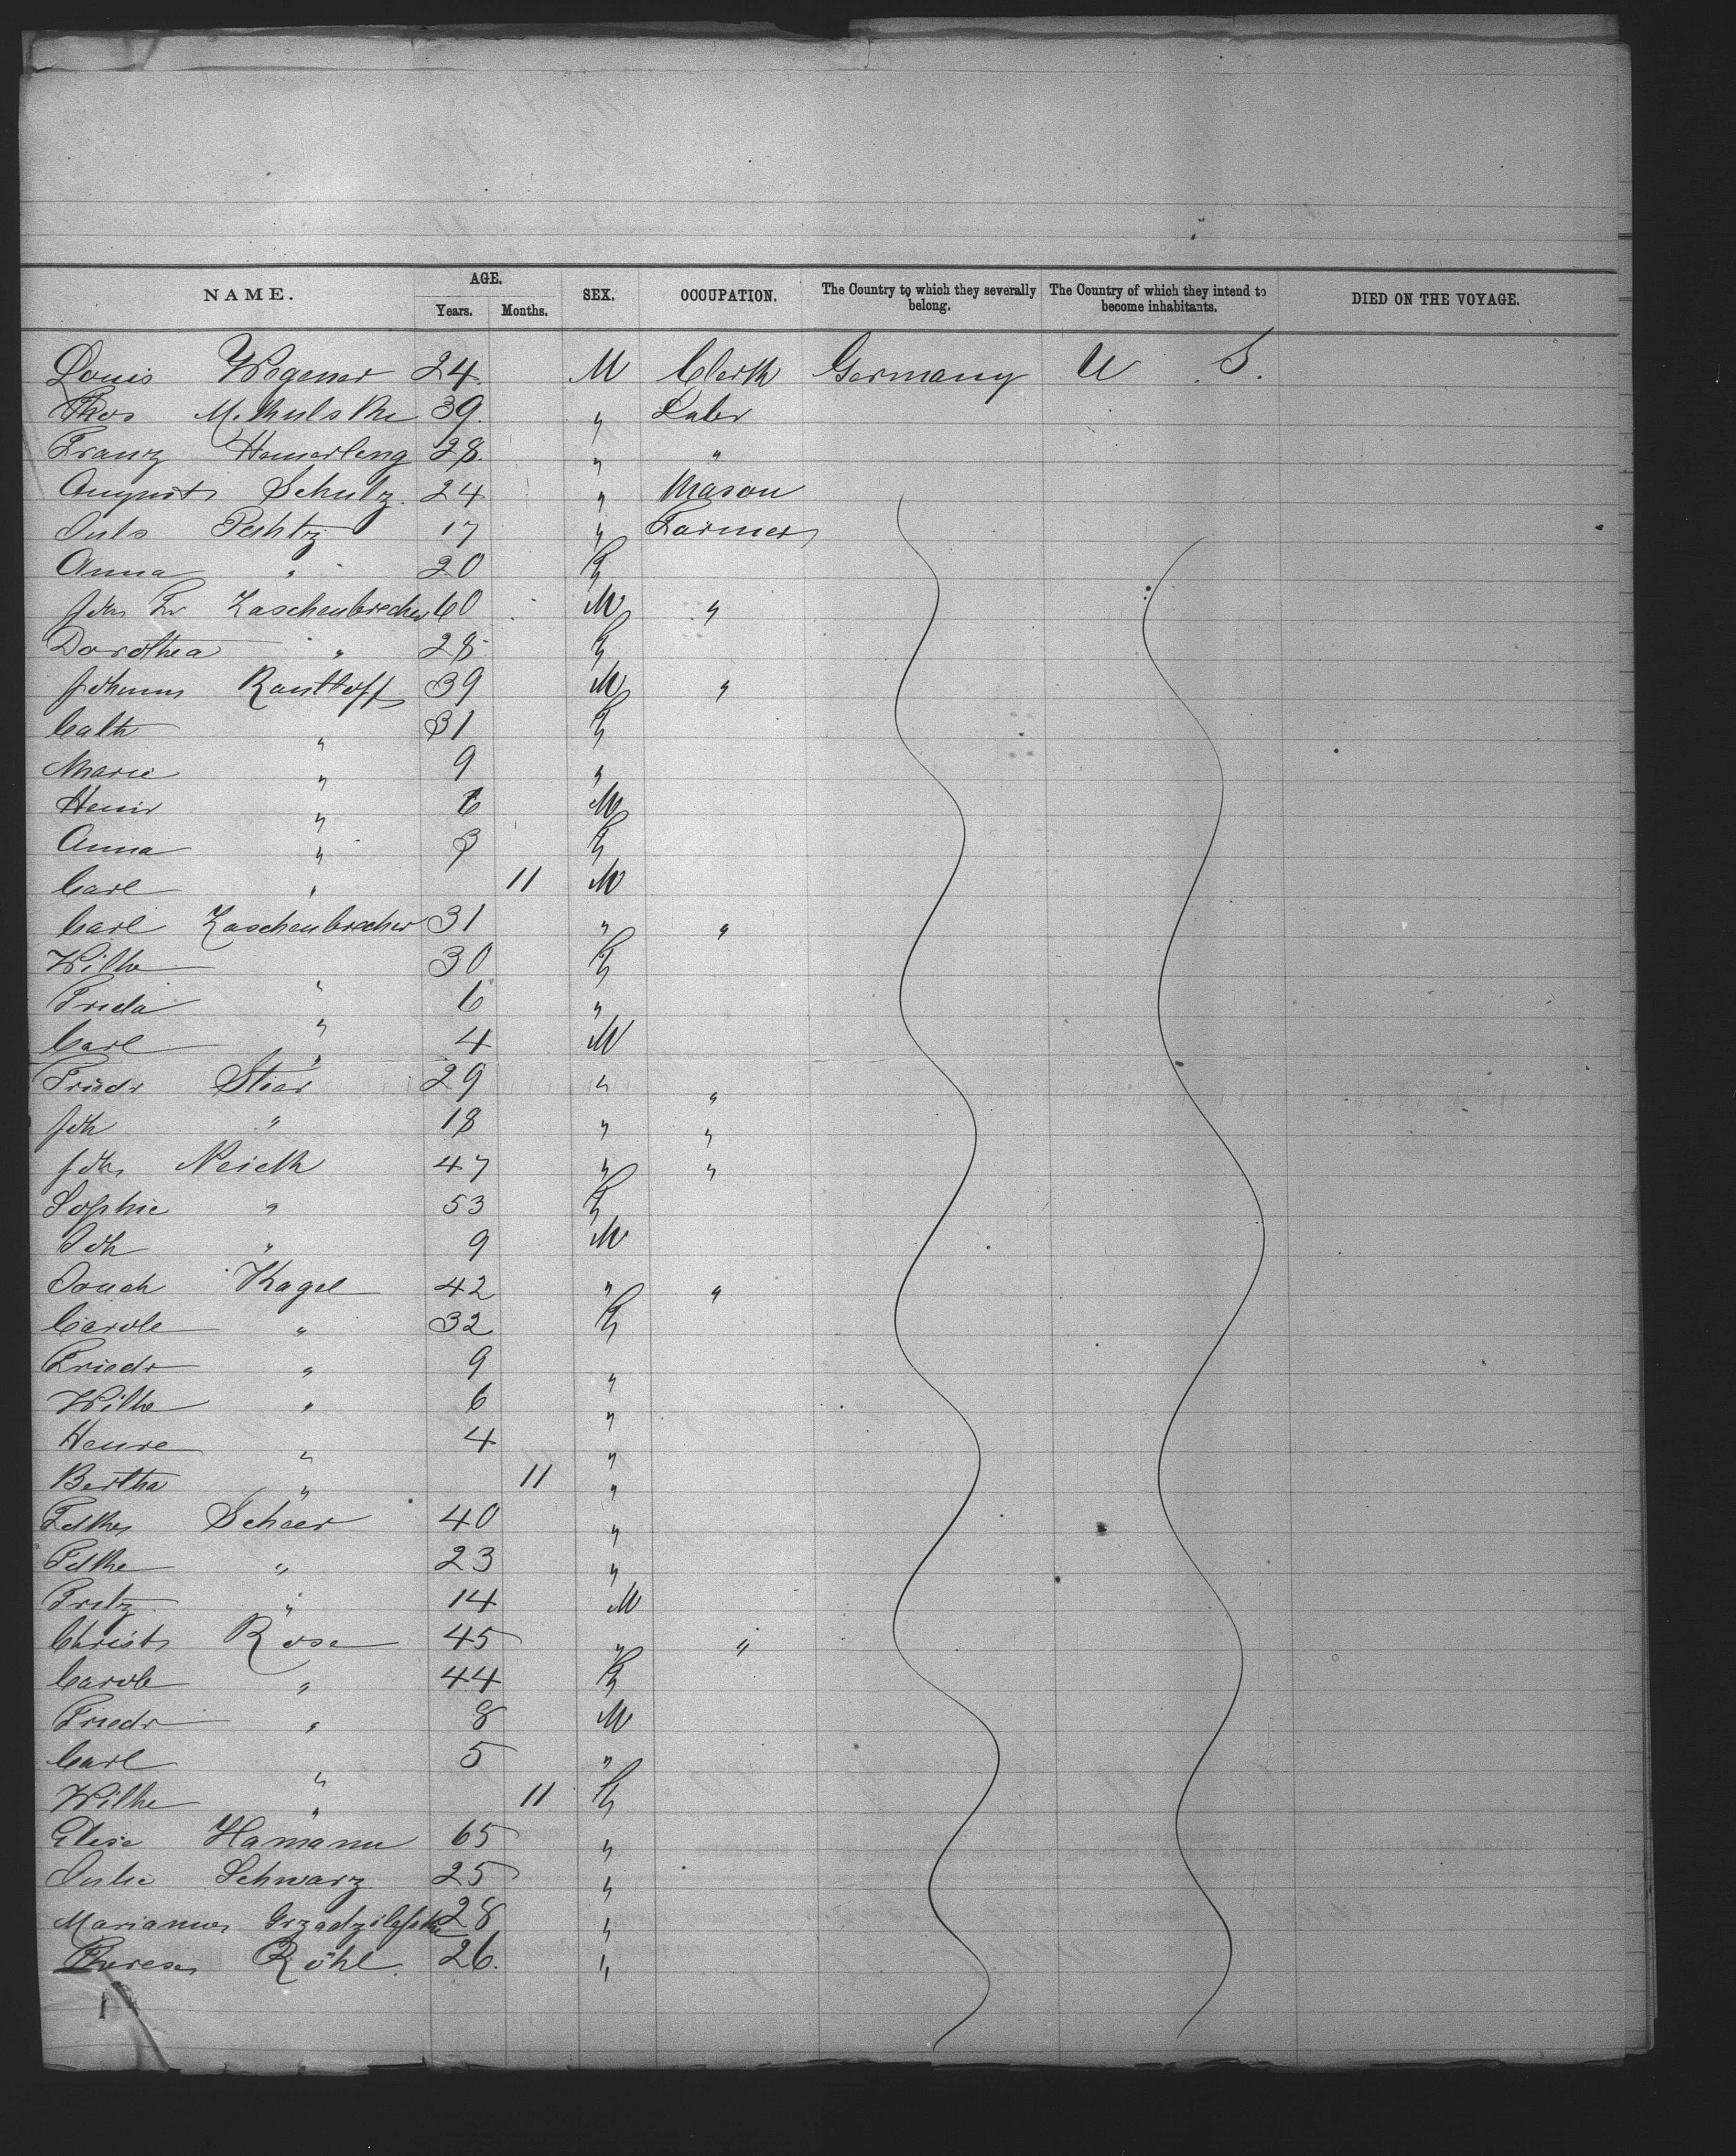 NAME. AGE. Years. Months. SEX. OCCUPATION. The Country to which they severally belong. The Country of which they intend to become inhabitants. DIED ON THE VOYAGE.
Louis Wegener 24. M Clerk Germany U. S.
Thos 39. " Labr
Franz Hemerleng 28. " "
August Schulz. 24 " Mason
Juls 17 " Farmer
Anna " 20 F
Joh Fr Zaschenbrecher 60 M "
Dorothea " 28 F
Johann Ranthoff 39 M "
Cath " 31 F
Marie " 9 "
Henr " 6 M
Anna " 3 F
Carl " 11 M
Carl Zaschenbrecher 31 " "
Wilhe " 30 F
Frieda " 6 "
Carl " 4 M
Friedr Stier 29 " "
Joh " 18 " "
Joh 47 " "
Sophie " 53 F
Joh " 9 M
Joach Kagel 42 " "
Carole " 32 F
Friedr " 9 "
Wilhe " 6 "
Henre " 4 "
Bertha " 11 "
Scheer 40 "
" 23 "
Fritz " 14 M
Christ Rose 45 " "
Carole " 44 F
Friedr " 8 M
Carl " 5 "
Wilhe " 11 F
Elise Hamann 65 "
Julie Schwarz 25 "
28 "
Therese Röhl. 26. "